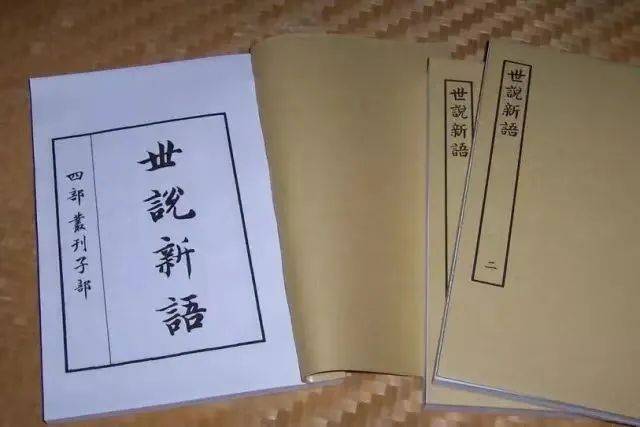 世說新語
四部叢刊子部
世說新語
世說新語
二